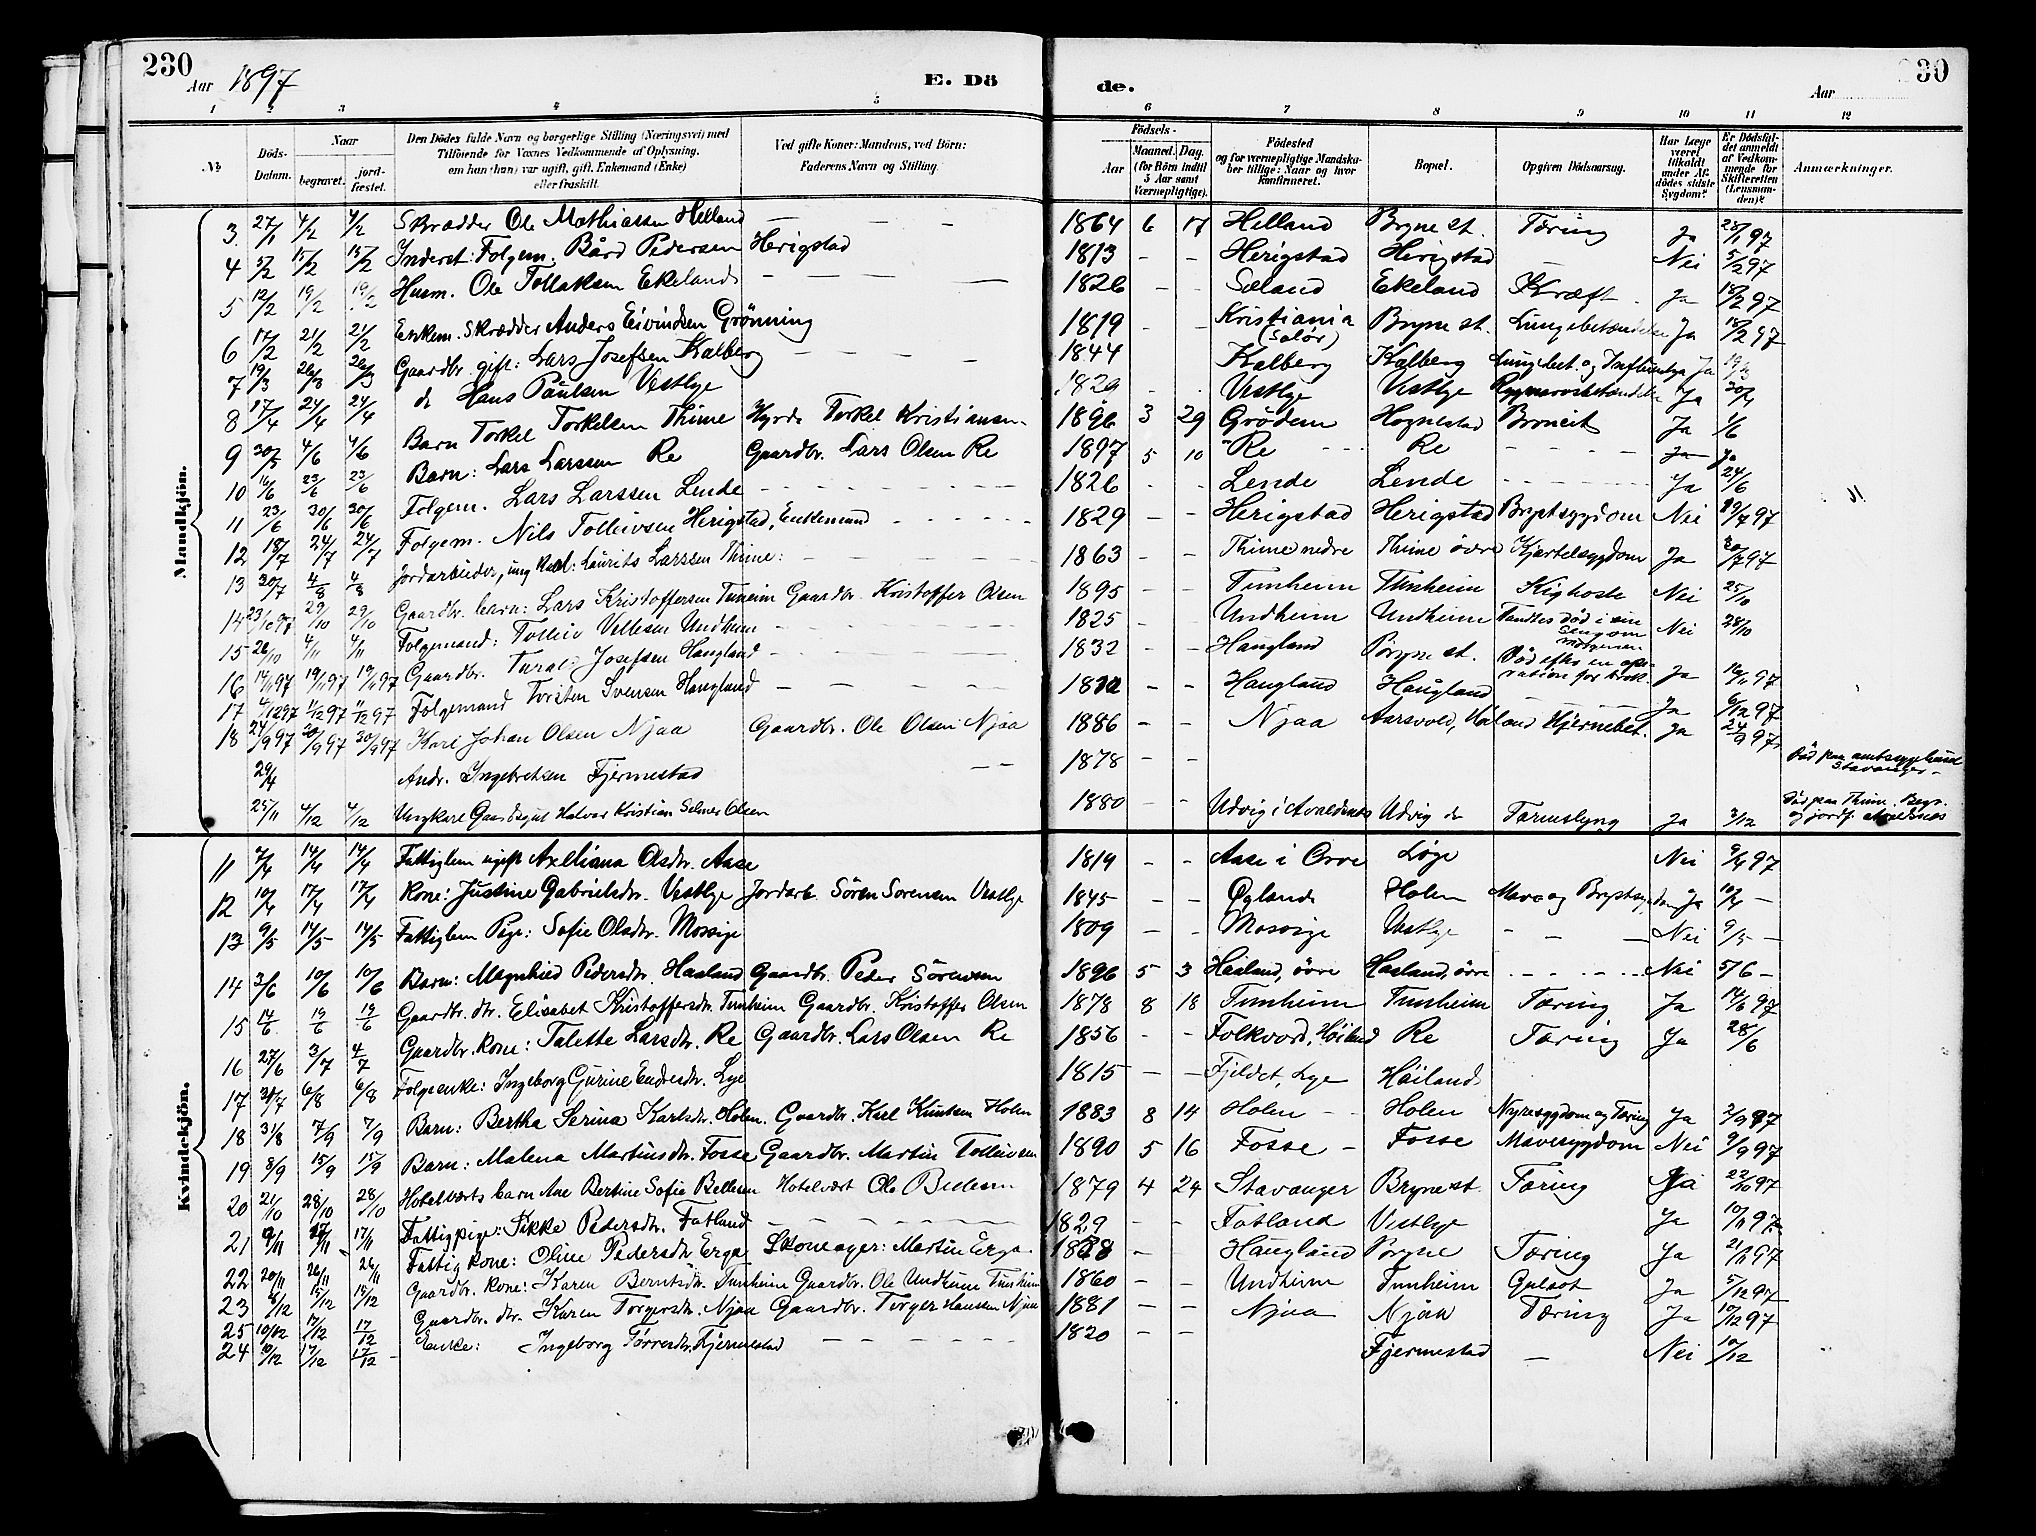 230
Aar 1897
E. Dö
de.
Aar
230
1 2 3 4 5 6 7 8 9 10 11 12
No.
Döds-Datum.
Naar
begravet.
jord-fæstet.
Den Dödes fulde Navn og borgerlige Stilling (Næringsvei) med
Tilföiende for Voxnes Vedkommende af Oplysning,
om han (hun) var ugift, gift, Enkemand (Enke)
eller fraskilt.
Ved gifte Koner: Mandens, ved Börn:
Faderens Navn og Stilling.
Födsels-
Aar
Maaned. Dag.
(for Börn indtil
5 Aar samt
Værnepligtige).
Födested
og for værnepligtige Mandska-
ber tillige: Naar og hvor
konfirmeret.
Bopæl.
Opgiven Dödsaarsag.
Har Læge
været
tilkaldt
under Af-
dödes sidste
Sygdom?
Er Dödsfal-
det anmeldt
af Vedkom-
mende for
Skifteretten
(Lensman-
den)?
Anmærkninger.
Mandkjön.
3 27/1 4/2 4/2 Skrædder Ole Mathiassen Helland — — 1864 6 17 Helland Bryne st. Tæring Ja 28/1 97
4 5/2 15/2 15/2 Inderst: Folgem. Bård Pedersen Herigstad 1813 - - Herigstad Herigstad — Nei 5/2 97
5 12/2 19/2 19/2 Husm. Ole Tollaksen Ekeland — — — 1826 - - Sæland Ekeland Kræft Ja 18/2 97
6 17/2 21/2 21/2 Enkem. Skrædder Anders Eivindsen Grönning 1819 - - Kristiania (Solör) Bryne st. Lungebetændelse Ja 18/2 97
7 19/3 26/3 26/3 Gaardbr. gift: Lars Josefsen Kalberg — — — 1844 Kalberg Kalberg Lungebet. og Influentza Ja
8 17/4 24/4 24/4 do Hans Paulsen Vestlye 1829 - - Vestlye Vestlye Rygmarvsbetændelse Ja 20/4
9 20/5 4/6 4/6 Barn Torkel Torkelsen Thime Hyrde Torkel Kristiansen 1896 3 29 Grödem Hognestad Bronkit Ja 1/6
10 16/6 23/6 23/6 Barn: Lars Larssen Re Gaardbr. Lars Olsen Re 1897 5 10 Re Re - - - Ja
11 23/6 30/6 30/6 Folgem. Lars Larssen Lende - - - 1826 - - Lende Lende - - - Ja 24/6
12 18/7 24/7 24/7 Folgem. Nils Tolleivsen Herigstad, Enkemand - - - 1829 - - Herigstad Herigstad Brystsygdom Nei 19/7 97
13 30/7 4/8 4/8 Jordarbeider, ung Karl: Laurits Larssen Thime: 1863 - - Thime nedre Thime övre Kjertelsygdom Ja 97
14 23/10 97 29/10 29/10 Gaardbr. barn: Lars Kristoffersen Tunheim Gaardbr. Kristoffer Olsen 1895 - - Tunheim Tunheim Kighoste Nei 25/10
15 26/10 4/11 4/11 Folgemand: Tolleiv Undheim - - - 1825 - - Undheim Undheim Fandtes död i sin Seng om morgenen Nei 28/10
16 14/11 97 19/11 97 19/11 97 Gaardbr. Josefsen Haugland - - - 1832 - - Haugland Bryne st. Död efter en operation for brok Ja 16/11 97
17 4/12 97 11/12 97 11/12 97 Folgemand Torsten Svensen Haugland - - - - - Haugland Haugland — Ja 6/12 97
18 24/9 97 30/9 97 30/9 97 Karl Johan Olsen Njaa Gaardbr. Ole Olsen Njaa 1886 - - Njaa Aarsvold, Höiland Hjernebet. Ja 24/9 97
29/4 Andr. Ingebretsen Fjermestad — — 1878 - - Död paa amtssygehuset Stavanger
25/11 4/12 4/12 Ungkarl Gaardsgut Halvar Kristian Selmer Olsen 1880 - - Udvig i Avaldsnes Udvig do Tarmslyng Ja 3/12 Död paa Thime. Begr. og jordf. Avaldsnes
Kvindekjön.
11 14/4 14/4 Fattiglem ugift Axeliana Olsdtr. Aase 1819 - - Aase i Orre Löge Nei 9/4 97
12 10/4 17/4 17/4 Kone: Justine Gabrielsdtr. Vestlye Jordarb. Sören Sörensen Vestlye 1845 - - Öglænd Holen Mave og Brystsygdom Ja 10/4 —
13 9/5 14/5 14/5 Fattiglem Pige: Sofie Olsdtr. Mossige 1809 - - Mossige Vestlye - - - Nei 9/5 —
14 3/6 10/6 10/6 Barn: Magnhild Pedersdtr. Haaland Gaardbr. Peder Sörensen 1896 5 3 Haaland, övre Haaland, övre - - - Nei 5/6 —
15 14/6 19/6 19/6 Gaardbr. dtr. Elisabet Kristoffersdtr. Tunheim Gaardbr. Kristoffer Olsen 1878 8 18 Tunheim Tunheim Tæring Ja 14/6 97
16 27/6 3/7 4/7 Gaardbr. Kone: Talette Larsdtr. Re Gaardbr. Lars Olsen Re 1856 - - Folkvord, Höiland Re Tæring Ja 28/6
17 31/7 6/8 6/8 Folgeenke: Ingeborg Gurine Endresdtr. Lye 1815 - - Fjeldet, Lye Höiland
18 31/8 7/9 7/9 Barn: Bertha Serina Karlsdtr. Holen Gaardbr. Karl Knutsen Holen 1883 8 14 Holen - Holen Nyresygdom og Tæring Ja 2/9 97
19 8/9 15/9 15/9 Barn: Malena Martinsdtr. Fosse Gaardbr. Martin Tolleivsen 1890 5 16 Fosse - Fosse Mavesygdom Nei 9/9 97
20 21/10 28/10 28/10 Hotelværts barn Ane Bertine Sofie Bellesen Hotelvært Ole Bellesen 1879 4 24 Stavanger Bryne st. Tæring Ja 22/10 97
21 9/11 17/11 17/11 Fattigpige: Sikke Pedersdtr. Fotland - - - 1829 - - Fotland Vestlye Ja 10/11 97
22 20/11 26/11 26/11 Fattig Kone: Oline Pedersdtr Erga Skomager: Martin Erga - Haugland Bryne Tæring Ja 97
23 8/12 15/12 15/12 Gaardbr. Kone: Karen Berntsdtr. Tunheim Gaardbr. Ole Undheim Tunheim 1860 - - Undheim Tunheim Gulsot Ja 5/12 97
25 10/12 17/12 17/12 Gaardbr. dtr. Karen Torgersdtr. Njaa Gaardbr. Torger Hansen Njaa 1881 - - Njaa Njaa Tæring Ja 10/12 97
24 10/12 17/12 17/12 Enke: Ingeborg Törresdtr. Fjermestad — — — 1820 - - Fjermestad — Nei 10/12